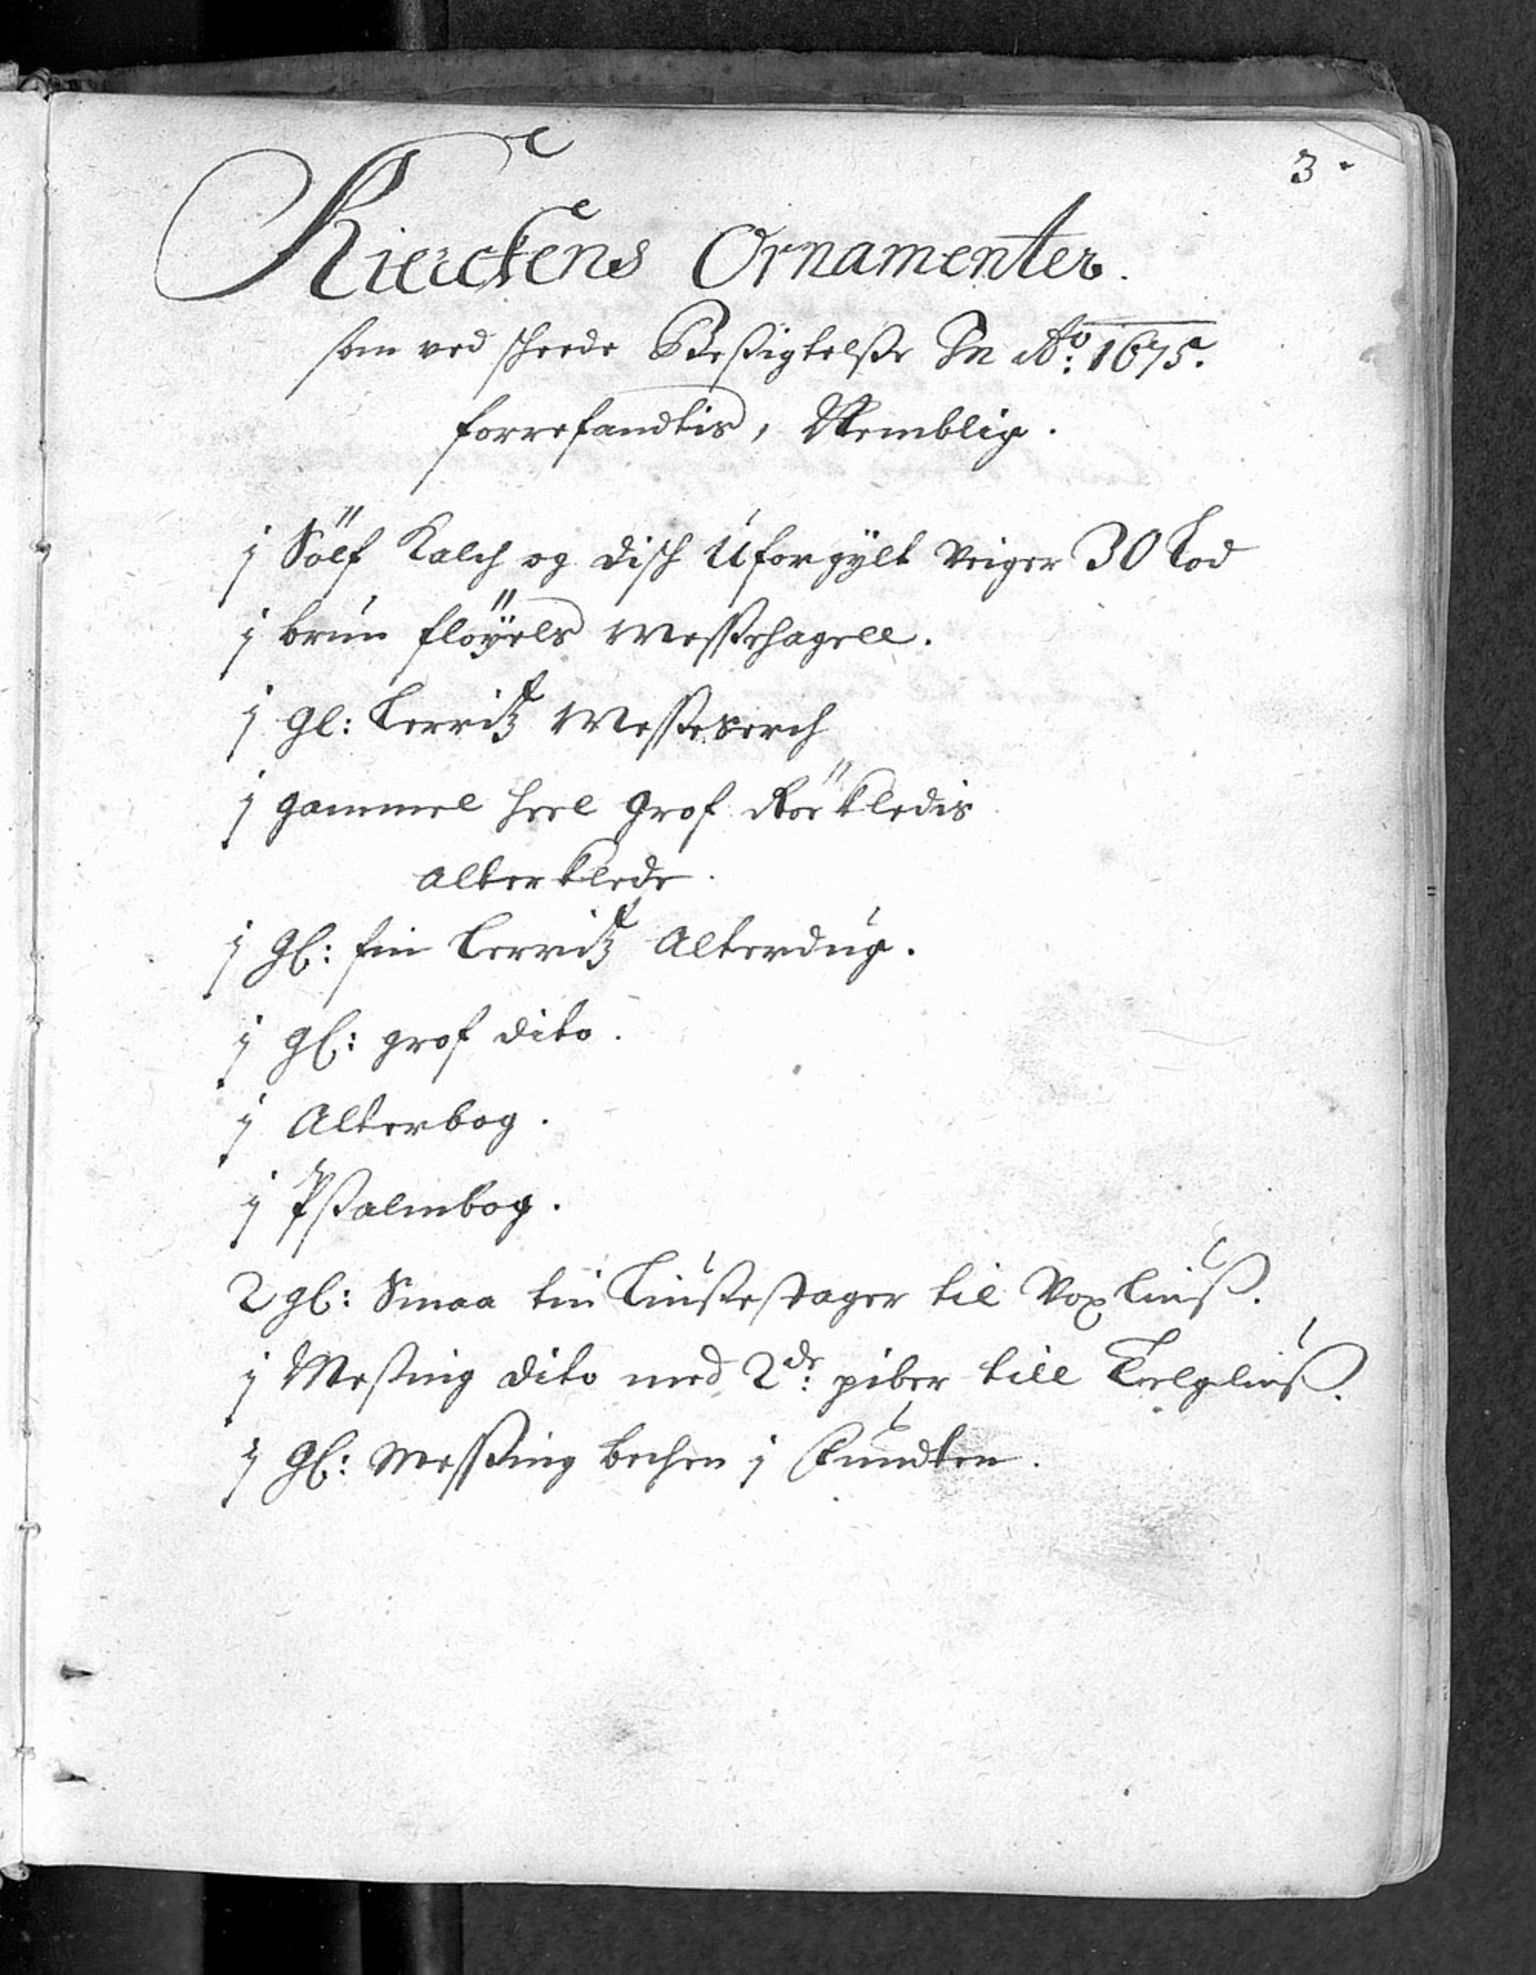 3.
Kierckens Ornamenter.
som ved skeede Besigtelsse In Ao: 1675.
forrefandtis, Nemblig.
j Sölf Kalch og disch Uforgÿlt Veiger 30 Lod
j brun fløÿels Messehagell.
j gl: Lerritz Messeserch
j gammel heel grof Kledis
Alterklede.
j gl: fin Lerritz Alterdug.
j gl: grof dito.
j Alterbog.
j Psalmbog.
2 gl: Smaa tin Liusestager til Vox Liuß.
j Messing dito med 2de: piber till Telgliuß.
j gl: Messing bechen j Fundten.